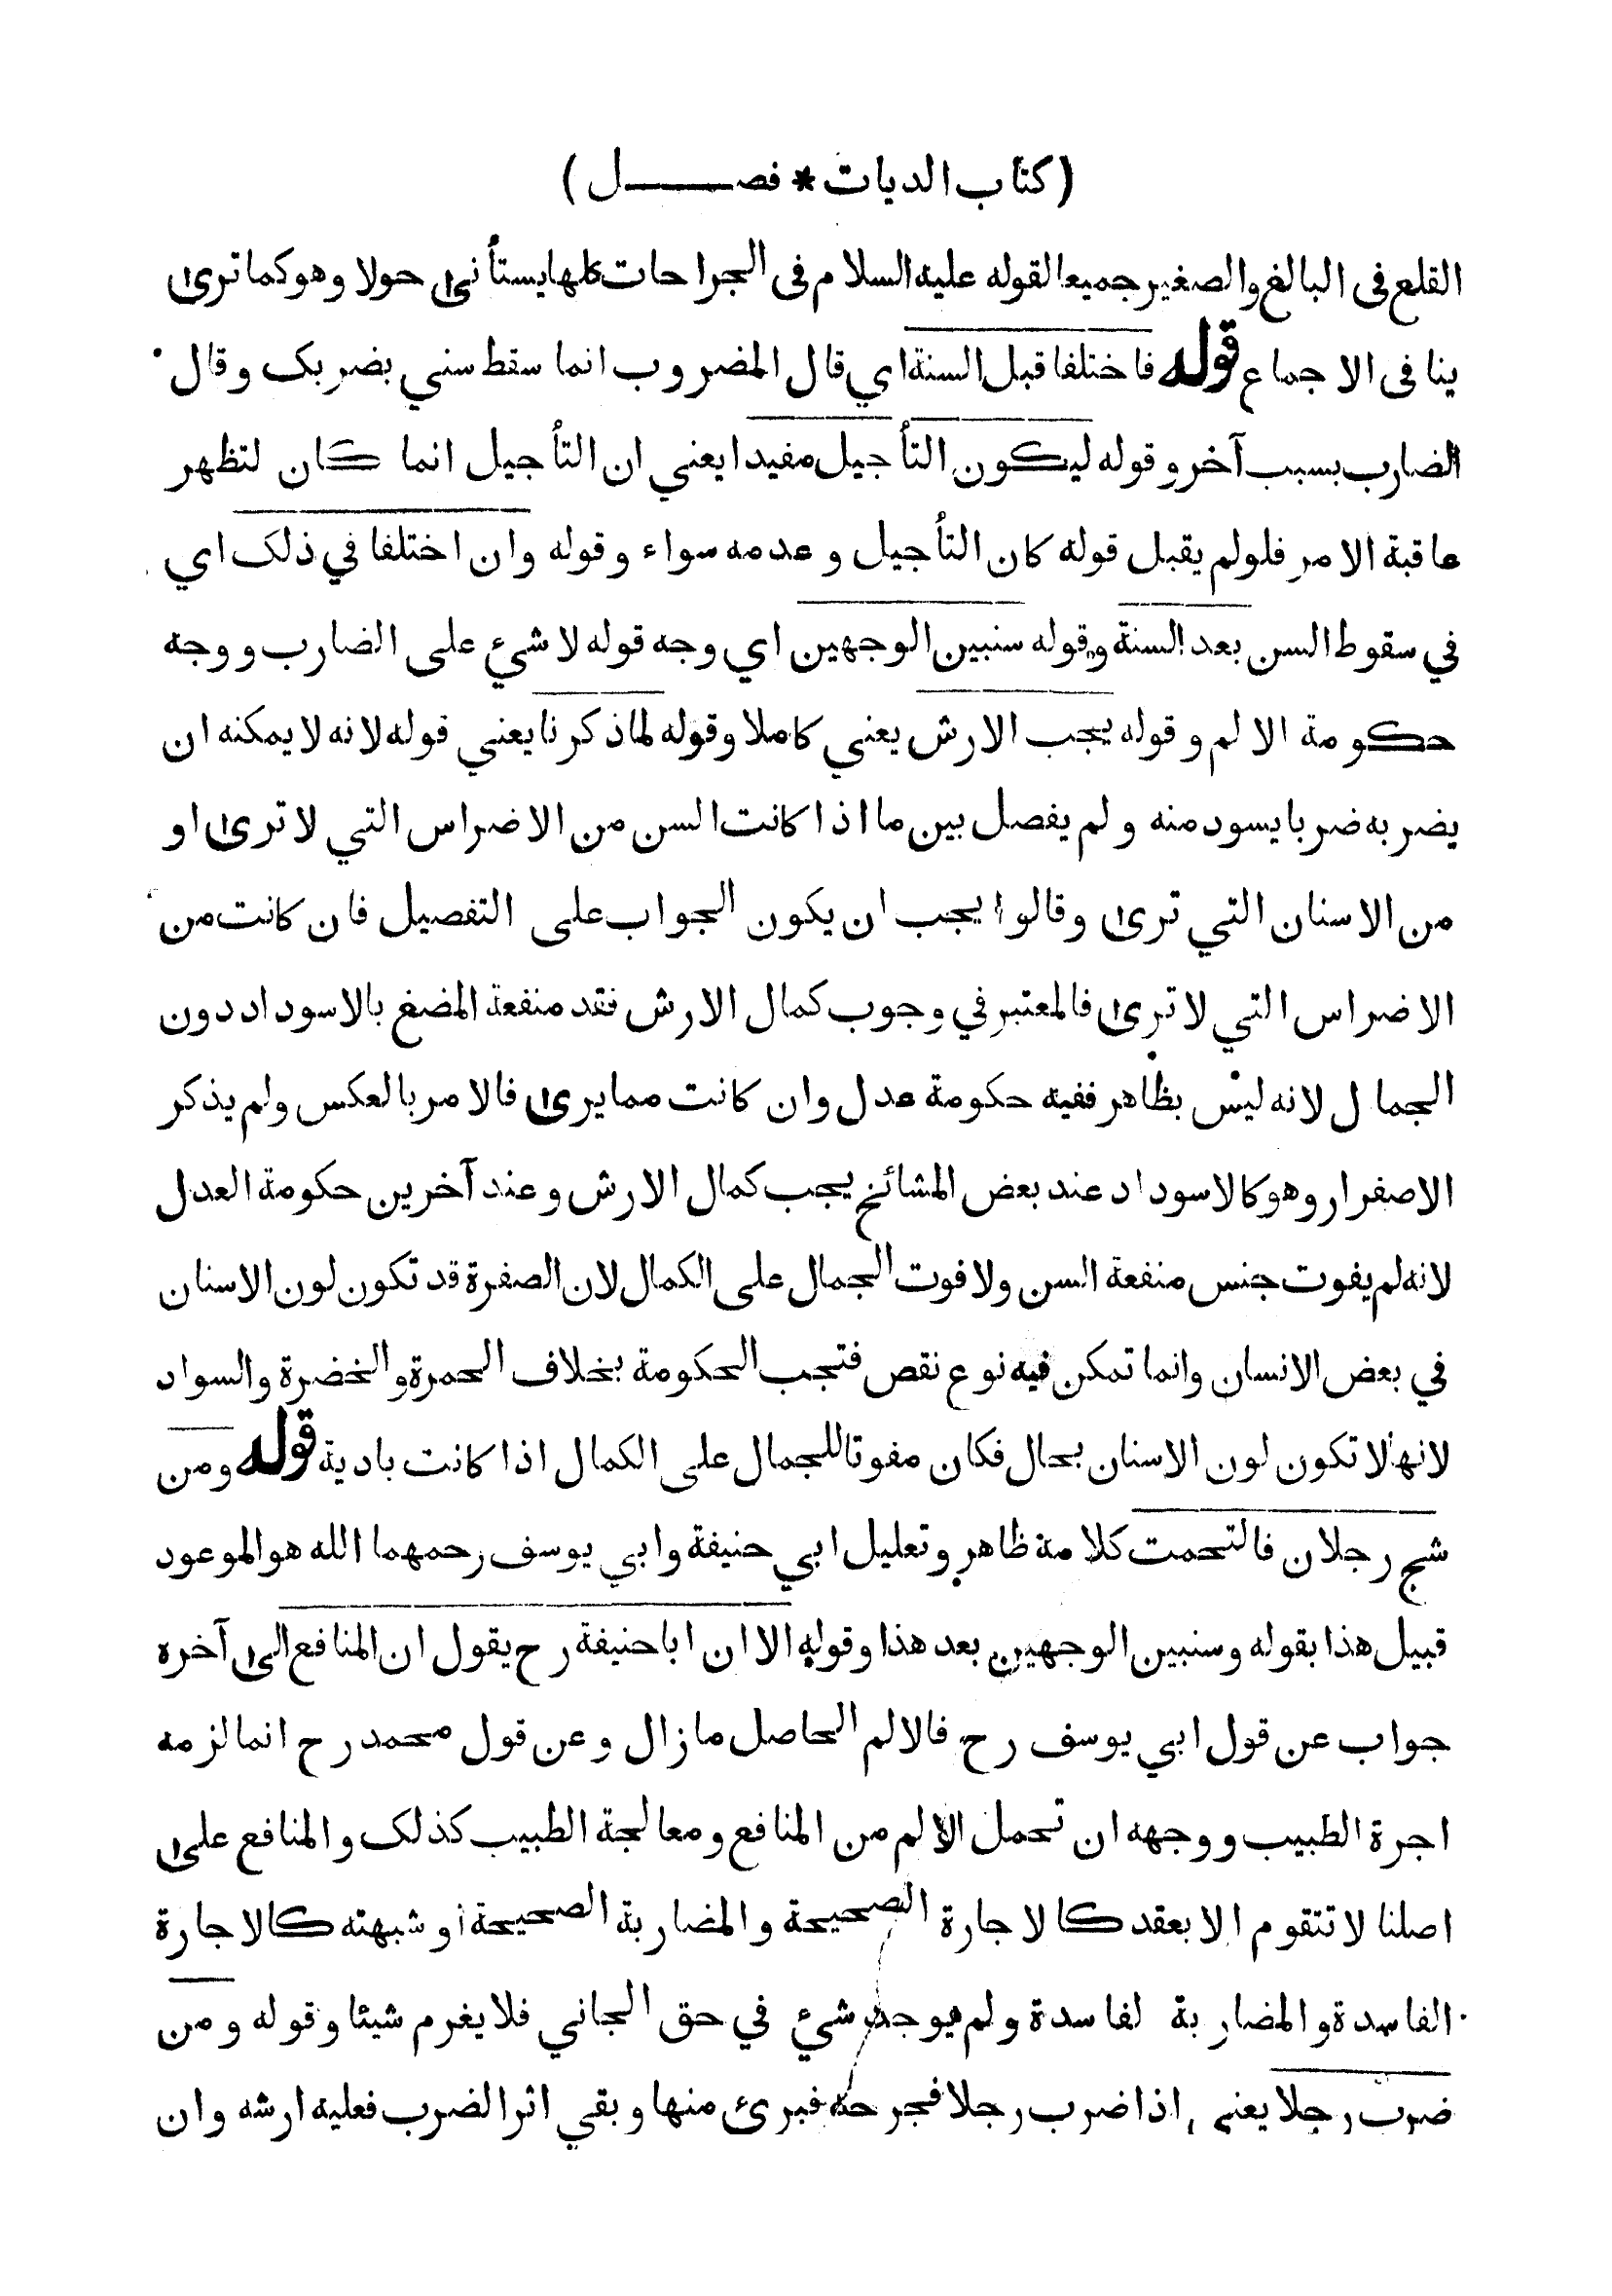 (كتاب الديات * فصـــــل)
القلع فى البالغ والصغير جميعا لقوله عليه السلام فى الجراحات كلها يستأنى حولا وهو كما ترى
ينافى الاجماع قوله فاختلفا قبل السنة اي قال المضروب انما سقط سني بضربك وقال
الضارب بسبب آخر وقوله ليكون التأجيل مفيدا يعني ان التأجيل انما كان لتظهر
عاقبة الامر فلو لم يقبل قوله كان التأجيل وعدمه سواء وقوله وان اختلفا في ذلك اي
في سقوط السن بعد السنة وقوله سنبين الوجهين اي وجه قوله لا شيء على الضارب ووجه
حكومة الالم وقوله يجب الارش يعني كاملا وقوله لما ذكرنا يعني قوله لانه لا يمكنه ان
يضربه ضربا يسود منه ولم يفصل بين ما اذا كانت السن من الاضراس التي لا ترى او
من الاسنان التي ترى وقالوا يجب ان يكون الجواب على التفصيل فان كانت من
الاضراس التي لا ترى فالمعتبر في وجوب كمال الارش فقد منفعة المضغ بالاسوداد دون
الجمال لانه ليس بظاهر ففيه حكومة عدل وان كانت مما يرى فالامر بالعكس ولم يذكر
الاصفرار وهو كالاسوداد عند بعض المشائخ يجب كمال الارش وعند آخرين حكومة العدل
لانه لم يفوت جنس منفعة السن ولا فوت الجمال على الكمال لان الصفرة قد تكون لون الاسنان
في بعض الانسان وانما تمكن فيه نوع نقص فتجب الحكومة بخلاف الحمرة والخضرة والسواد
لانها لا تكون لون الاسنان بحال فكان مفوتا للجمال على الكمال اذا كانت بادية قوله ومن
شج رجلان فالتحمت كلامه ظاهر وتعليل ابي حنيفة وابي يوسف رحمهما الله هو الموعود
قبيل هذا بقوله وسنبين الوجهين بعد هذا وقوله الا ان ابا حنيفة رح يقول ان المنافع الى آخره
جواب عن قول ابي يوسف رح فالالم الحاصل ما زال وعن قول محمد رح انما لزمه
اجرة الطبيب ووجهه ان تحمل الالم من المنافع ومعالجة الطبيب كذلك والمنافع على
اصلنا لا تتقوم الا بعقد كالاجارة الصحيحة والمضاربة الصحيحة او شبهته كالاجارة
الفاسدة والمضاربة لفاسدة ولم يوجد شيء في حق الجاني فلا يغرم شيئا وقوله ومن
ضرب رجلا يعني اذا ضرب رجلا فجرحه فبرئ منها وبقي اثر الضرب فعليه ارشه وان